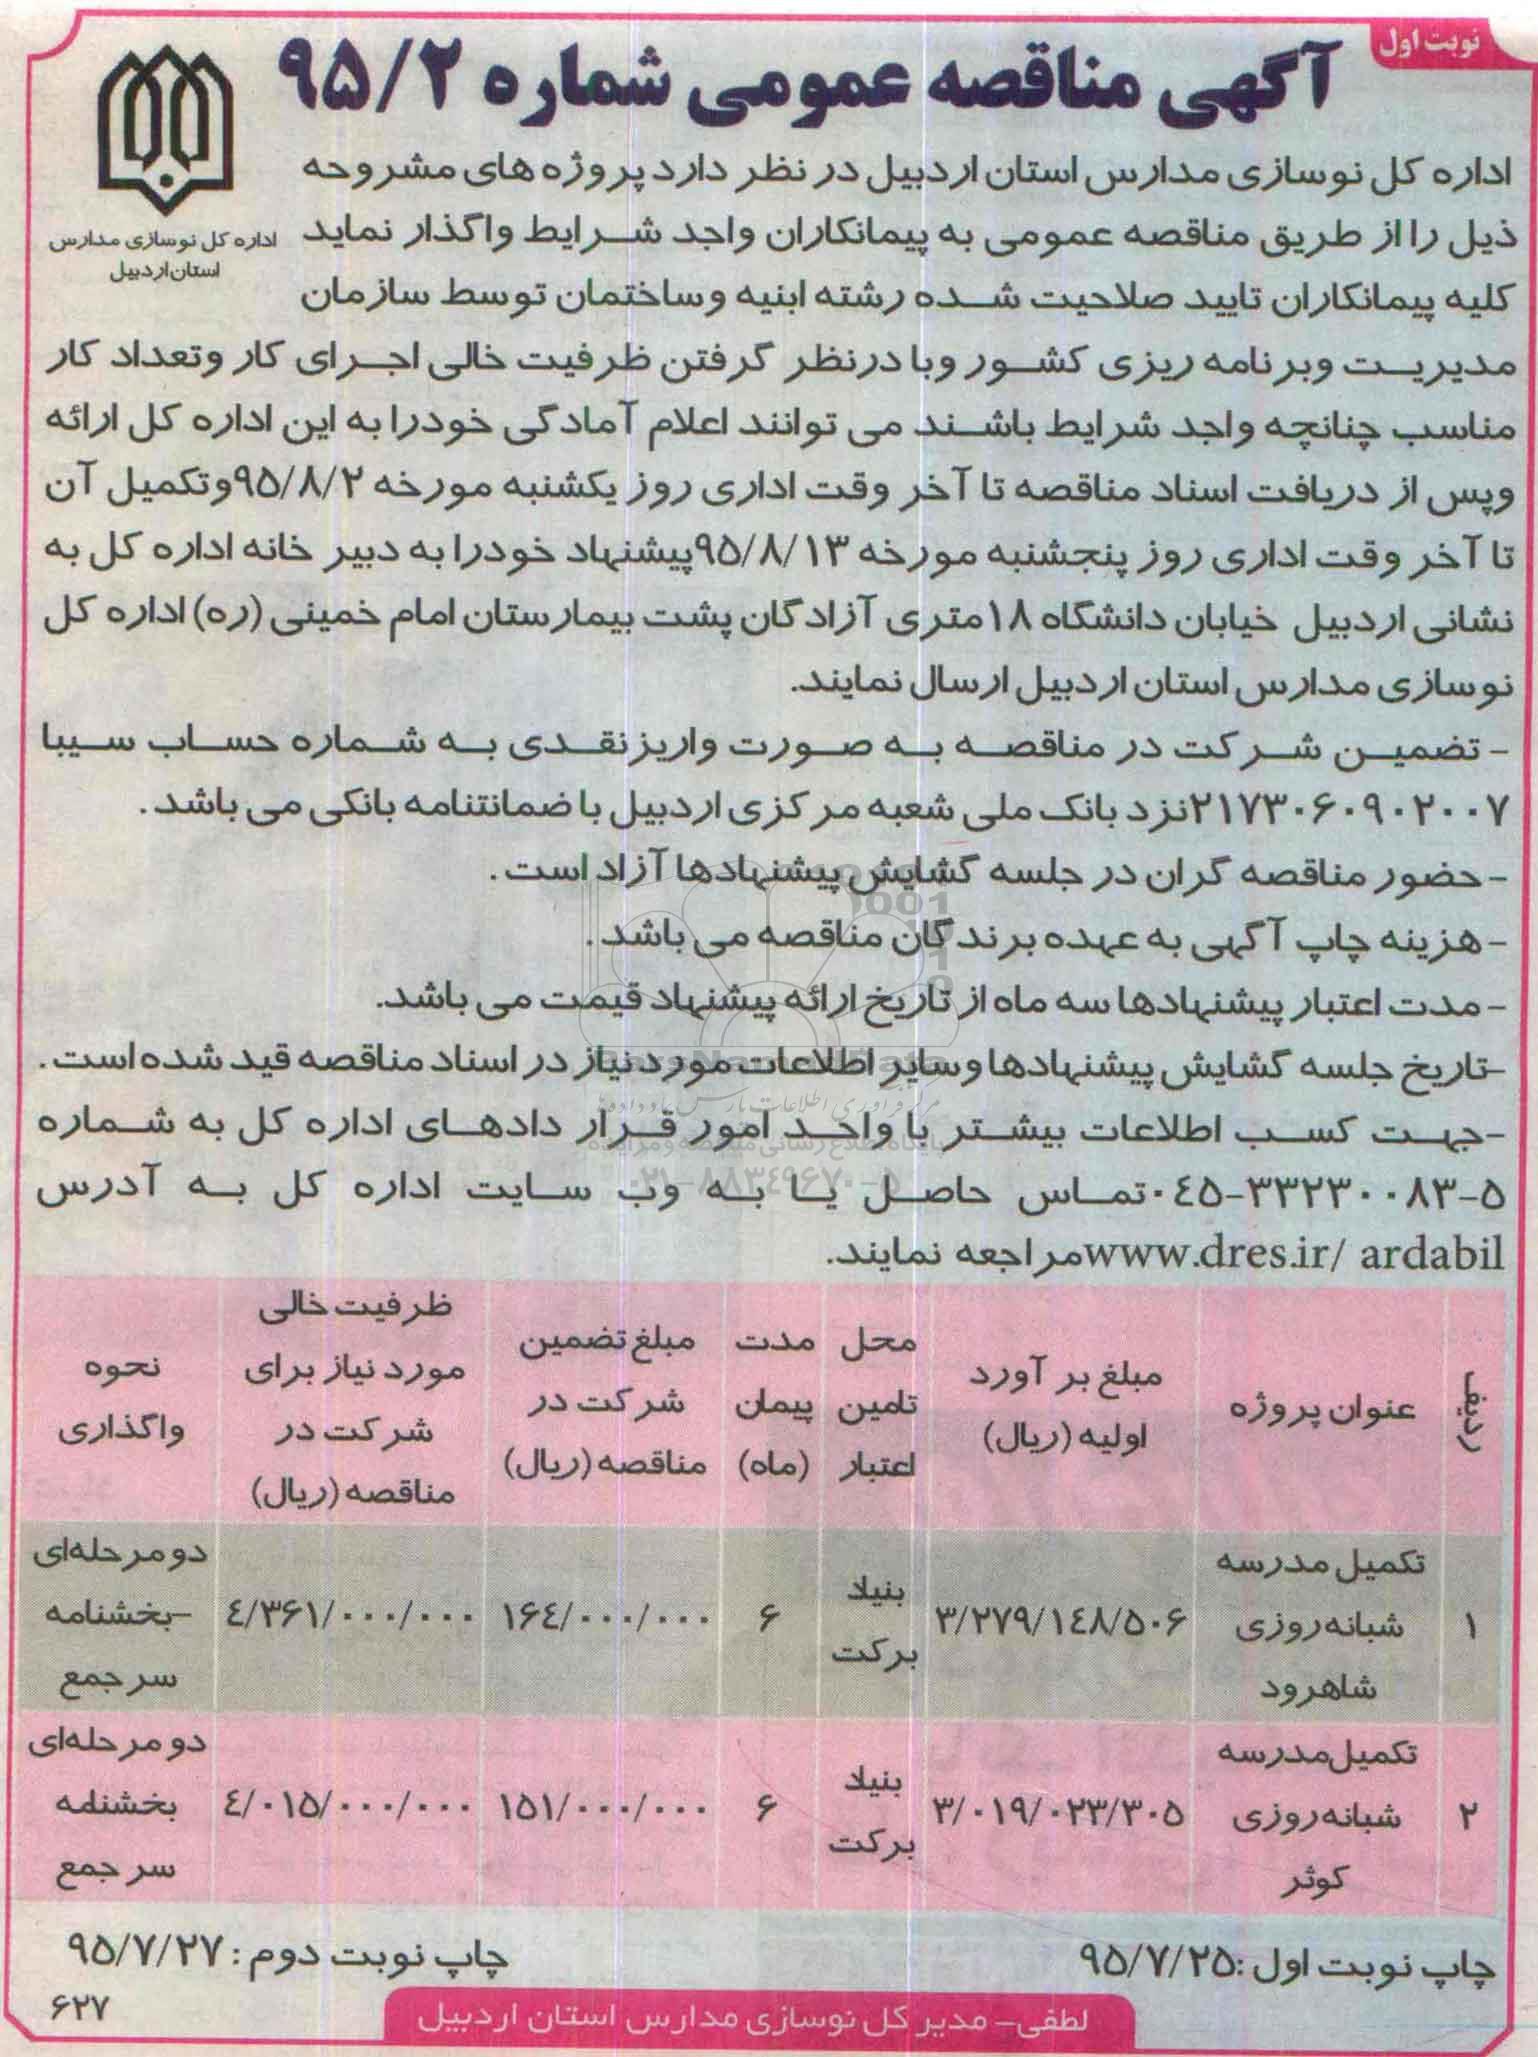 نوبت اول
آگهی مناقصه عمومی شماره ۹۵/۲
اداره کل نوسازی مدارس
استان اردبیل
اداره کل نوسازی مدارس استان اردبیل در نظر دارد پروژه های مشروحه
ذیل را از طریق مناقصه عمومی به پیمانکاران واجد شرایط واگذار نماید
کلیه پیمانکاران تایید صلاحیت شده رشته ابنیه وساختمان توسط سازمان
مدیریت وبرنامه ریزی کشور وبا درنظر گرفتن ظرفیت خالی اجرای کار وتعداد کار
مناسب چنانچه واجد شرایط باشند می توانند اعلام آمادگی خودرا به این اداره کل ارائه
وپس از دریافت اسناد مناقصه تا آخر وقت اداری روز یکشنبه مورخه ۹۵/۸/۲وتکمیل آن
تا آخر وقت اداری روز پنجشنبه مورخه ۹۵/۸/۱۳پیشنهاد خودرا به دبیر خانه اداره کل به
نشانی اردبیل خیابان دانشگاه ۱۸متری آزادگان پشت بیمارستان امام خمینی (ره) اداره کل
نوسازی مدارس استان اردبیل ارسال نمایند.
- تضمین شرکت در مناقصه به صورت واریزنقدی به شماره حساب سیبا
۲۱۷۳۰۶۰۹۰۲۰۰۷نزد بانک ملی شعبه مرکزی اردبیل با ضمانتنامه بانکی می باشد .
- حضور مناقصه گران در جلسه گشایش پیشنهادها آزاد است .
- هزینه چاپ آگهی به عهده برندگان مناقصه می باشد .
- مدت اعتبار پیشنهادها سه ماه از تاریخ ارائه پیشنهاد قیمت می باشد.
-تاریخ جلسه گشایش پیشنهادها وسایر اطلاعات مورد نیاز در اسناد مناقصه قید شده است .
-جهت کسب اطلاعات بیشتر با واحد امور قرار دادهای اداره کل به شماره
۰۴۵-۳۳۲۳۰۰۸۳-۵تماس حاصل یا به وب سایت اداره کل به آدرس
www.dres.ir/ ardabilمراجعه نمایند.
ردیف | عنوان پروژه | مبلغ بر آورد اولیه (ریال) | محل تامین اعتبار | مدت پیمان (ماه) | مبلغ تضمین شرکت در مناقصه (ریال) | ظرفیت خالی مورد نیاز برای شرکت در مناقصه (ریال) | نحوه واگذاری
۱ | تکمیل مدرسه شبانه روزی شاهرود | ۳/۲۷۹/۱۴۸/۵۰۶ | بنیاد برکت | ۶ | ۱۶۴/۰۰۰/۰۰۰ | ۴/۳۶۱/۰۰۰/۰۰۰ | دو مرحله‌ای -بخشنامه سر جمع
۲ | تکمیل مدرسه شبانه روزی کوثر | ۳/۰۱۹/۰۲۳/۳۰۵ | بنیاد برکت | ۶ | ۱۵۱/۰۰۰/۰۰۰ | ۴/۰۱۵/۰۰۰/۰۰۰ | دو مرحله‌ای بخشنامه سر جمع
چاپ نوبت اول :۹۵/۷/۲۵
چاپ نوبت دوم : ۹۵/۷/۲۷
لطفی- مدیر کل نوسازی مدارس استان اردبیل
۶۲۷
۰۲۱-۸۸۳۴۹۶۷۰-۵